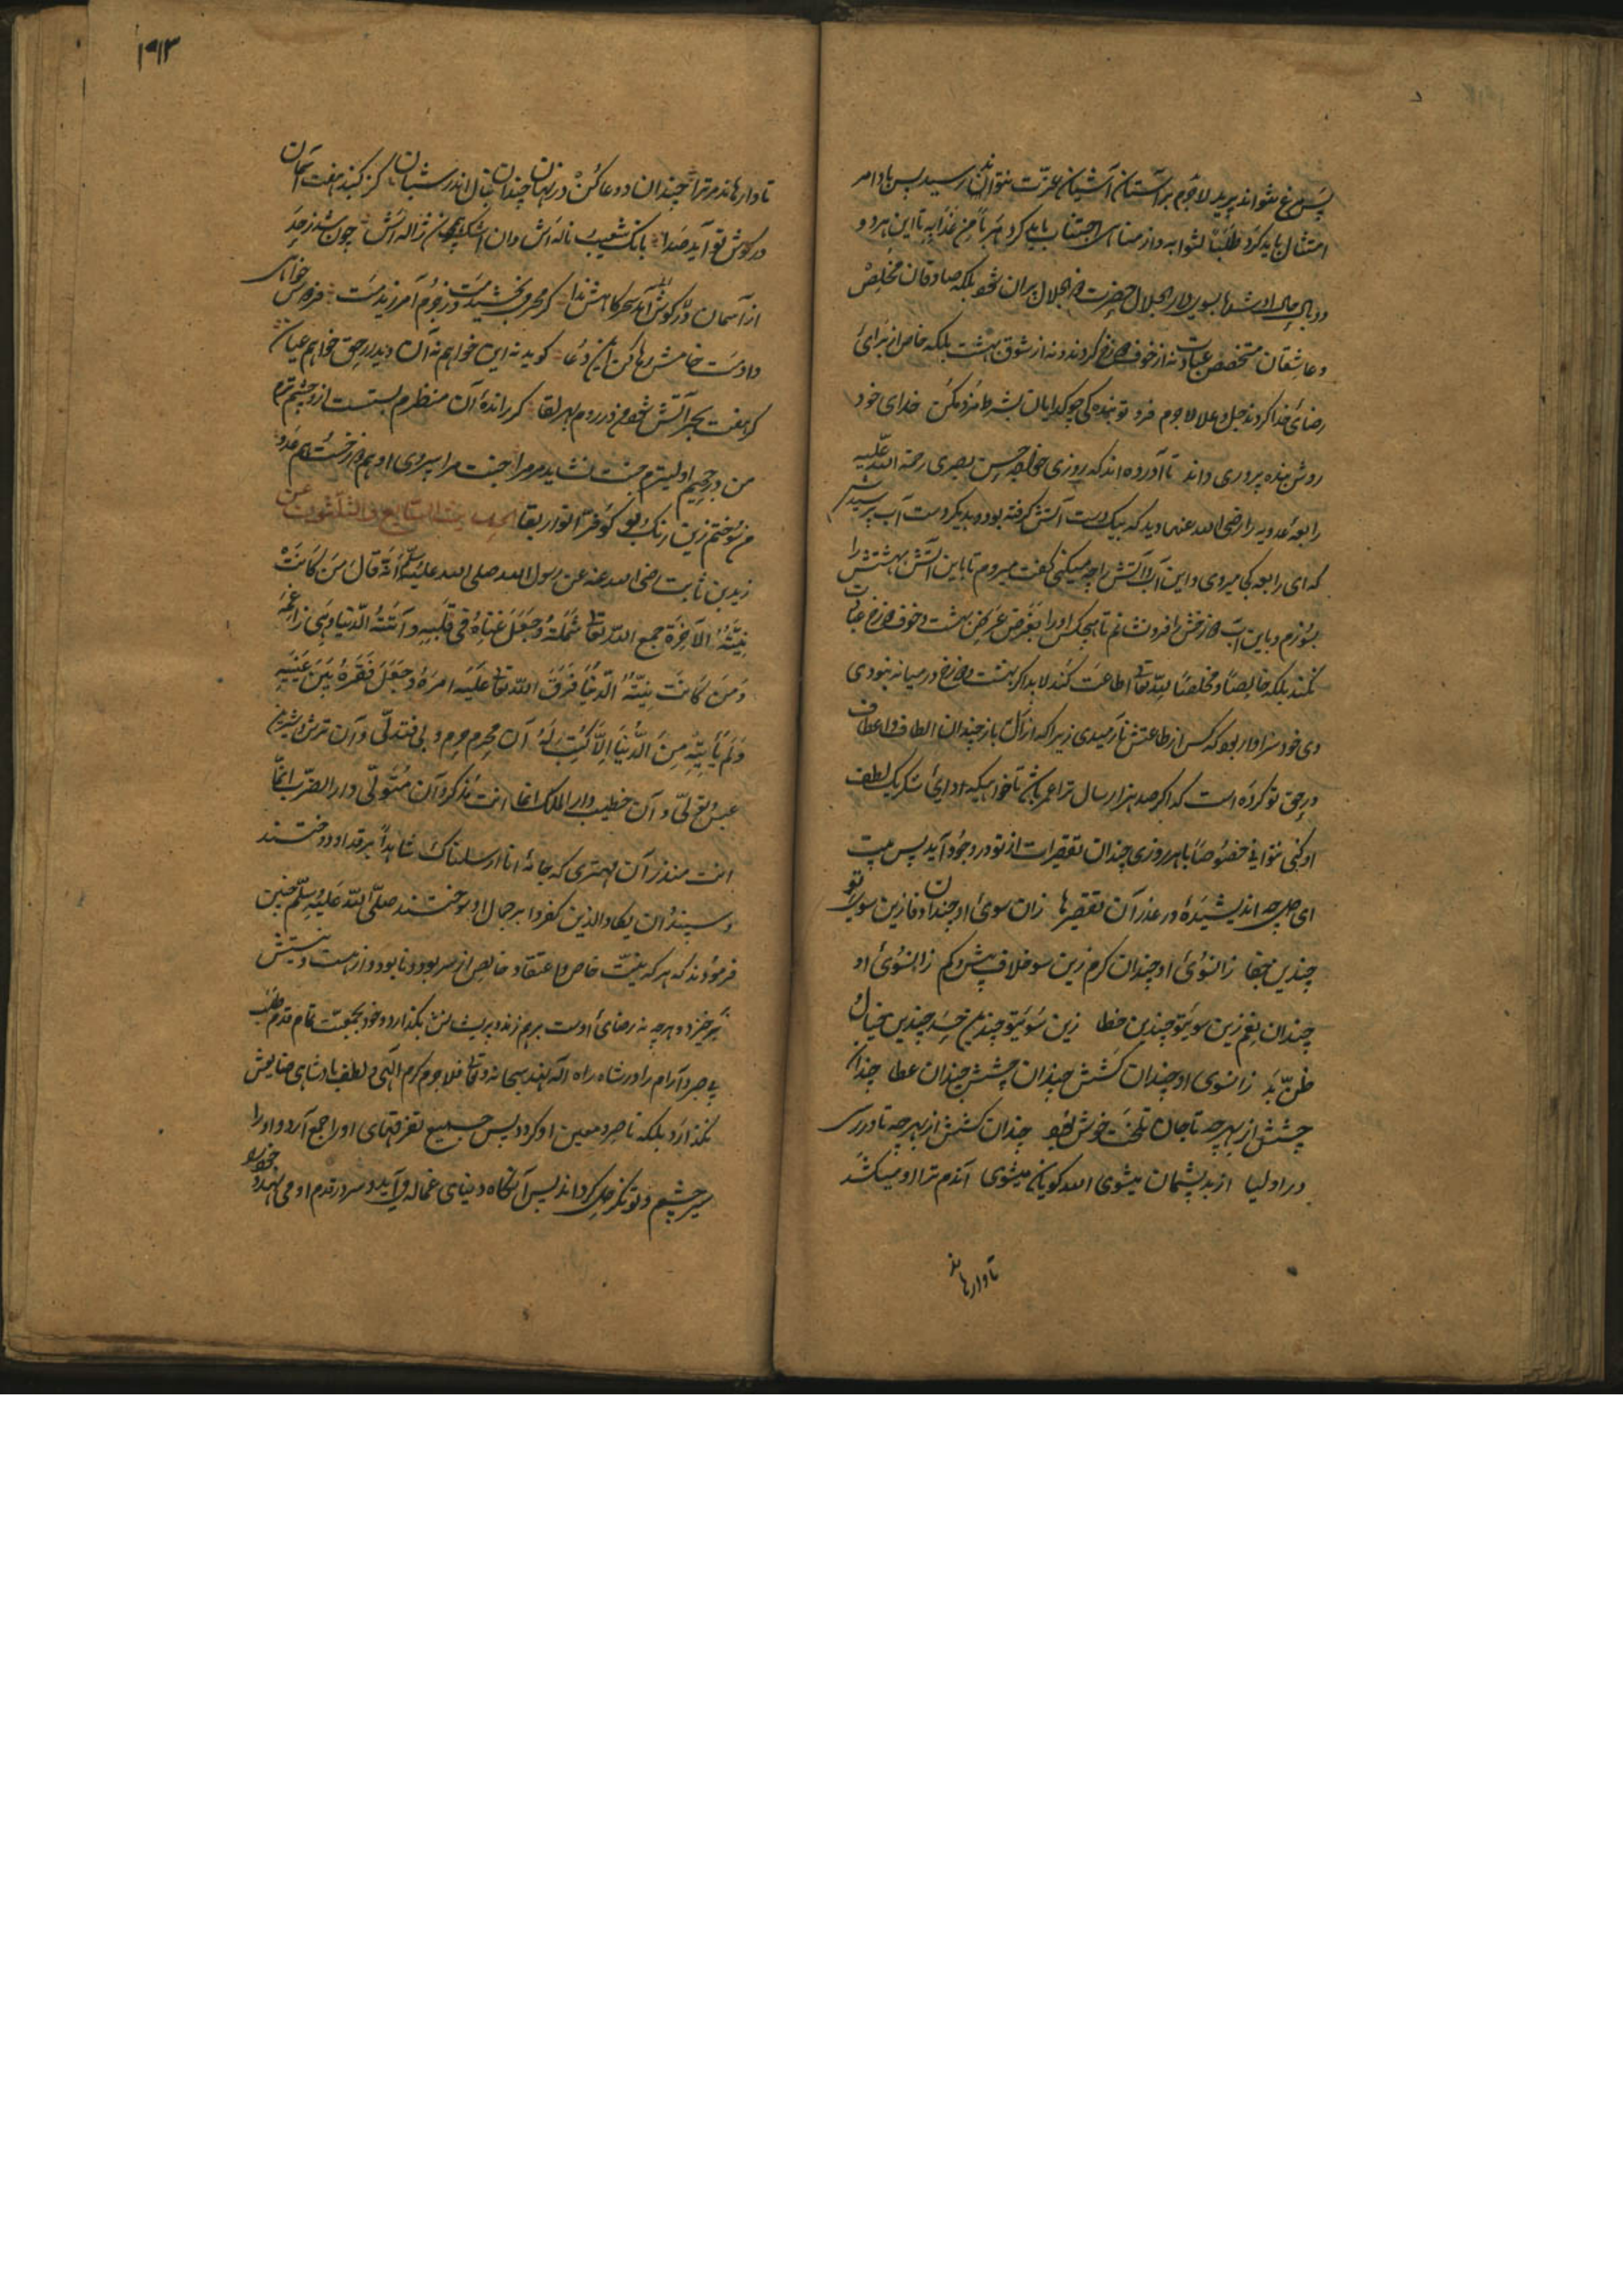 پس مرغ نتواند پرید لاجرم بر آستان آشیان عزت نتواند رسید پس باوامر
امتثال باید کرد طلبا لثوابه و از مناهی اجتناب باید کرد هربا من عذابه تا این هر دو
دو بال شد بسوی دار الجلال حضرت ذو الجلال پران شود بلکه صادقان مخلص
و عاشقان متخصص عبادت نه از خوف دوزخ کردند و نه از شوق بهشت بلکه خاص از برای
رضای خدا کردند جل و علا لاجرم فرد تو بندگی چو گدایان بشرط مزد مکن خدای خود
روش بنده پروری داند تا آورده اند که روزی خواجه حسن بصری رحمة الله علیه
رابعه عدویه را رضی الله عنها دید که بیک دست آتش گرفته بود و بدیگر دست آب پرسیدش
که ای رابعه کجا میروی و این آب و آتش را چه میکنی گفت میروم تا باین آتش بهشتش را
بسوزم و باین آب دوزخش را فرو نشانم تا هیچکس او را بغرض بهشت و خوف دوزخ عبادت
نکند بلکه خالصا و مخلصا لله تعالی اطاعت کند لابد اگر بهشت و دوزخ در میانه نبودی
وی خود سزاوار بود که کس از طاعتش نارمیدی زیرا که از ازل باز چندان الطاف و اعطاف
در حق تو کرده است که اگر صد هزار سال ترا عمر باشد تا خواهی که ادای شکر یک لطف
او کنی نتوانی خصوصا با هر روزی چندان تقصیرات از تو در وجود آید پس بیت
ای دل چه اندیشیده در عذر آن تقصیرها زان سوی او چندان وفا زین سوی تو
چندین جفا زانسوی او چندان کرم زین سو خلاف بیش و کم زانسوی او
چندان نعم زین سوی تو چندین خطا زین سوی تو چندین حسد چندین خیال
ظن بد زانسوی او چندان کشش چندان چشش چندان عطا چندان
چشش از بهر چه تا جان تلخت خوش شود چندان کشش از بهر چه تا در رسی
در اولیا از بد پشیمان میشوی الله گویان میشوی آندم ترا او میکشد
تا وارهاند
۱۹۱۳
تا وارهاند مر ترا چندان دعا کن در نهان چندان بنال اندر شبان کز گنبد هفت آسمان
در گوش تو آید صدا بانک شعیب و ناله اش وان اشک همچون ژاله اش چون شد ز حد
از آسمان در گوش آمد سحرگاهش ندا گر مجرمی بخشیدمت وز جرم آمرزیدمت فردوس خواهی
دادمت خامش رها کن این دعا گوید نه این خواهم نه آن دیدار حق خواهم عیان
گر هفت بحر آتش شود من در روم بهر لقا گر رانده آن منظرم بستست ازو چشم ترم
من در جحیم اولیترم جنت نشاید مر مرا جنت مرا بی روی او هم دوزخست هم عدو
من سوختم زین رنگ و بو کو فر انوار بقا الحدیث السابع و الثلثون عن
زید بن ثابت رضی الله عنه عن رسول الله صلی الله علیه وسلم انه قال من کانت
نیته الآخرة جمع الله تعالی شمله و جعل غناه فی قلبه و اتته الدنیا وهی راغمة
و من کانت نیته الدنیا فرق الله تعالی علیه امره و جعل فقره بین عینیه
و لم یأتیه من الدنیا الا ما کتب له آن محرم حرم دنی فتدلی و آن ترش شیرین
عبس و تولی و آن خطیب دار الملک انما انت مذکر و آن متولی دار الضرب انما
انت منذر آن مهتری که جامه انا ارسلناک شاهدا بر قد او دوختند
و سپند و ان یکاد الذین کفروا بر جمال او سوختند صلی الله علیه وسلم چنین
فرمودند که هر که بنیت خاص و اعتقاد خالص از سر بود و نابود و از هست و نیستش
برخیزد و هرچه نه رضای اوست برهم زند و پریشان بگذارد و خود بجمعیت تمام قدم طلب
بی صبر و آرام را در شاه راه اله نهد سبحانه و تعالی فلا جرم کرم الهی و لطف پادشاهی ضایعش
نگذارد بلکه ناصر و معین او گردد پس جمیع تفرقتهای او را جمع آرد و او را
سیر چشم و توانگر دل گرداند پس آنگاه دنیای غماله فرو آید و سر در قدم او می نهد و خود را